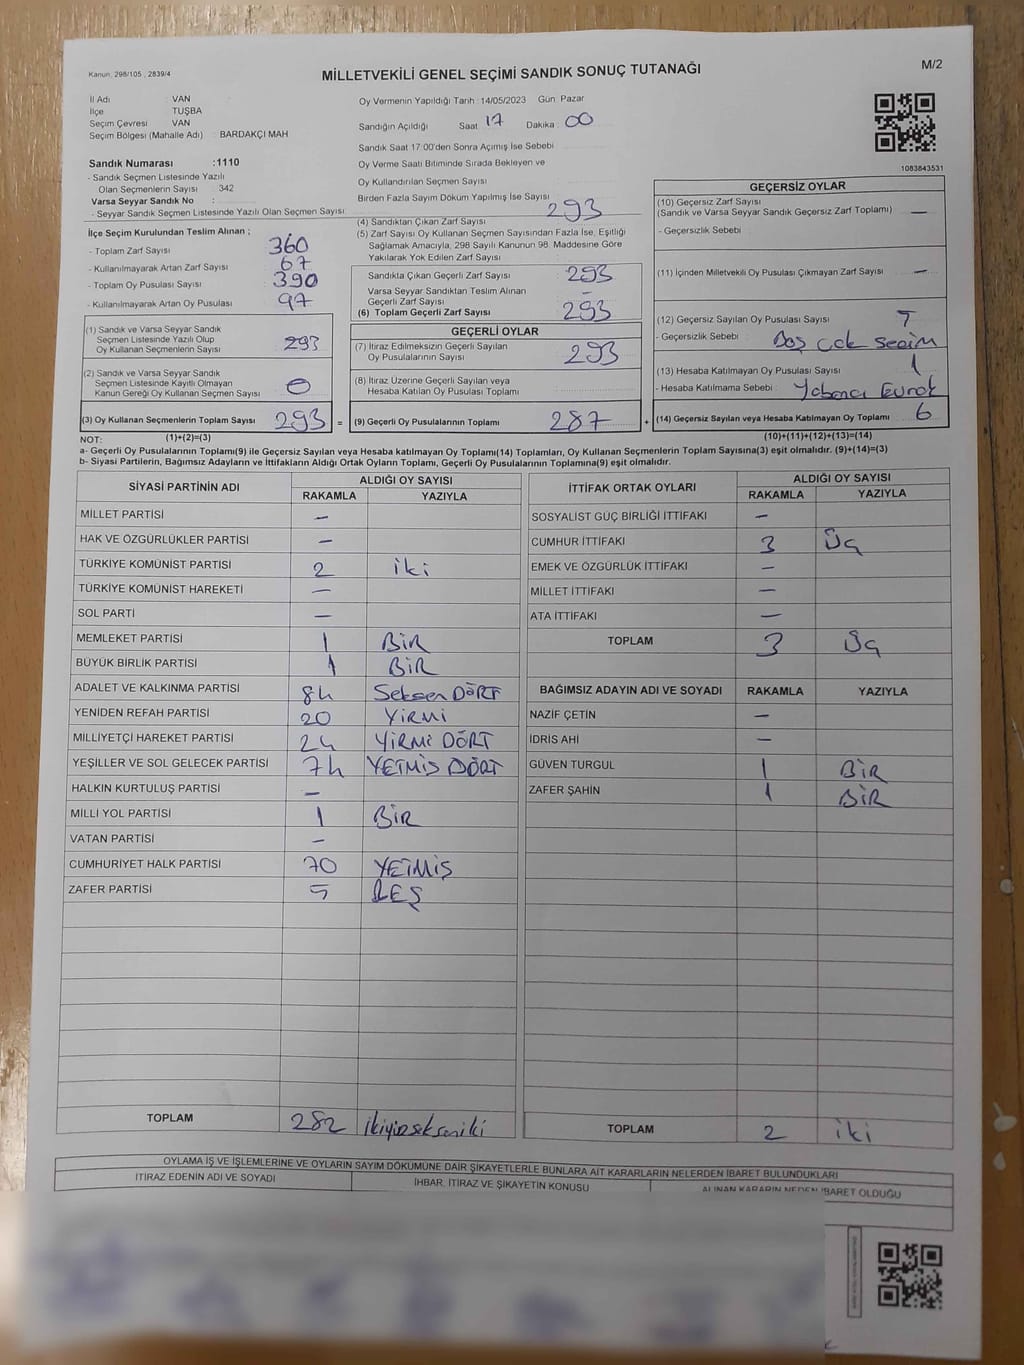 Kanun, 298/105 , 2839/4
MİLLETVEKİLİ GENEL SEÇİMİ SANDIK SONUÇ TUTANAĞI
M/2
İl Adı : VAN
İlçe : TUŞBA
Seçim Çevresi : VAN
Seçim Bölgesi (Mahalle Adı) : BARDAKÇI MAH
Sandık Numarası :1110
- Sandık Seçmen Listesinde Yazılı
Olan Seçmenlerin Sayısı : 342
Varsa Seyyar Sandık No :
- Seyyar Sandık Seçmen Listesinde Yazılı Olan Seçmen Sayısı:
İlçe Seçim Kurulundan Teslim Alınan ;
- Toplam Zarf Sayısı 360
- Kullanılmayarak Artan Zarf Sayısı 67
- Toplam Oy Pusulası Sayısı 390
- Kullanılmayarak Artan Oy Pusulası 97
(1) Sandık ve Varsa Seyyar Sandık
Seçmen Listesinde Yazılı Olup
Oy Kullanan Seçmenlerin Sayısı 293
(2) Sandık ve Varsa Seyyar Sandık
Seçmen Listesinde Kayıtlı Olmayan
Kanun Gereği Oy Kullanan Seçmen Sayısı 0
(3) Oy Kullanan Seçmenlerin Toplam Sayısı 293 =
(1)+(2)=(3)
Oy Vermenin Yapıldığı Tarih : 14/05/2023 Gün: Pazar
Sandığın Açıldığı Saat : 17 Dakika : 00
Sandık Saat 17:00'den Sonra Açılmış İse Sebebi
Oy Verme Saati Bitiminde Sırada Bekleyen ve
Oy Kullandırılan Seçmen Sayısı
Birden Fazla Sayım Döküm Yapılmış İse Sayısı
(4) Sandıktan Çıkan Zarf Sayısı 293
(5) Zarf Sayısı Oy Kullanan Seçmen Sayısından Fazla İse, Eşitliği
Sağlamak Amacıyla, 298 Sayılı Kanunun 98. Maddesine Göre
Yakılarak Yok Edilen Zarf Sayısı
Sandıkta Çıkan Geçerli Zarf Sayısı 293
Varsa Seyyar Sandıktan Teslim Alınan
Geçerli Zarf Sayısı -
(6) Toplam Geçerli Zarf Sayısı 293
GEÇERLİ OYLAR
(7) İtiraz Edilmeksizin Geçerli Sayılan
Oy Pusulalarının Sayısı 293
(8) İtiraz Üzerine Geçerli Sayılan veya
Hesaba Katılan Oy Pusulalarının Toplamı
(9) Geçerli Oy Pusulalarının Toplamı 287 +
1083843531
GEÇERSİZ OYLAR
(10) Geçersiz Zarf Sayısı
(Sandık ve Varsa Seyyar Sandık Geçersiz Zarf Toplamı) —
- Geçersizlik Sebebi :
(11) İçinden Milletvekili Oy Pusulası Çıkmayan Zarf Sayısı —
(12) Geçersiz Sayılan Oy Pusulası Sayısı 5
- Geçersizlik Sebebi : Boş çok seçim
(13) Hesaba Katılmayan Oy Pusulası Sayısı 1
- Hesaba Katılmama Sebebi : Yabancı Evrak
(14) Geçersiz Sayılan veya Hesaba Katılmayan Oy Toplamı 6
(10)+(11)+(12)+(13)=(14)
NOT:
a- Geçerli Oy Pusulalarının Toplamı(9) ile Geçersiz Sayılan veya Hesaba katılmayan Oy Toplamı(14) Toplamları, Oy Kullanan Seçmenlerin Toplam Sayısına(3) eşit olmalıdır. (9)+(14)=(3)
b- Siyasi Partilerin, Bağımsız Adayların ve İttifakların Aldığı Ortak Oyların Toplamı, Geçerli Oy Pusulalarının Toplamına(9) eşit olmalıdır.
SİYASİ PARTİNİN ADI ALDIĞI OY SAYISI
RAKAMLA YAZIYLA
MİLLET PARTİSİ —
HAK VE ÖZGÜRLÜKLER PARTİSİ —
TÜRKİYE KOMÜNİST PARTİSİ 2 iki
TÜRKİYE KOMÜNİST HAREKETİ —
SOL PARTİ —
MEMLEKET PARTİSİ 1 BİR
BÜYÜK BİRLİK PARTİSİ 1 BİR
ADALET VE KALKINMA PARTİSİ 84 Seksen DÖRT
YENİDEN REFAH PARTİSİ 20 YİRMİ
MİLLİYETÇİ HAREKET PARTİSİ 24 YİRMİ DÖRT
YEŞİLLER VE SOL GELECEK PARTİSİ 74 YETMİŞ DÖRT
HALKIN KURTULUŞ PARTİSİ —
MİLLİ YOL PARTİSİ 1 BİR
VATAN PARTİSİ —
CUMHURİYET HALK PARTİSİ 70 YETMİŞ
ZAFER PARTİSİ 5 BEŞ
TOPLAM 282 ikiyüzsekseniki
İTTİFAK ORTAK OYLARI ALDIĞI OY SAYISI
RAKAMLA YAZIYLA
SOSYALİST GÜÇ BİRLİĞİ İTTİFAKI —
CUMHUR İTTİFAKI 3 Üç
EMEK VE ÖZGÜRLÜK İTTİFAKI —
MİLLET İTTİFAKI —
ATA İTTİFAKI —
TOPLAM 3 Üç
BAĞIMSIZ ADAYIN ADI VE SOYADI RAKAMLA YAZIYLA
NAZİF ÇETİN —
İDRİS AHİ —
GÜVEN TURGUL 1 BİR
ZAFER ŞAHİN 1 BİR
TOPLAM 2 iki
OYLAMA İŞ VE İŞLEMLERİNE VE OYLARIN SAYIM DÖKÜMÜNE DAİR ŞİKAYETLERLE BUNLARA AİT KARARLARIN NELERDEN İBARET BULUNDUKLARI
İTİRAZ EDENİN ADI VE SOYADI İHBAR, İTİRAZ VE ŞİKAYETİN KONUSU ALINAN KARARIN NEDEN İBARET OLDUĞU